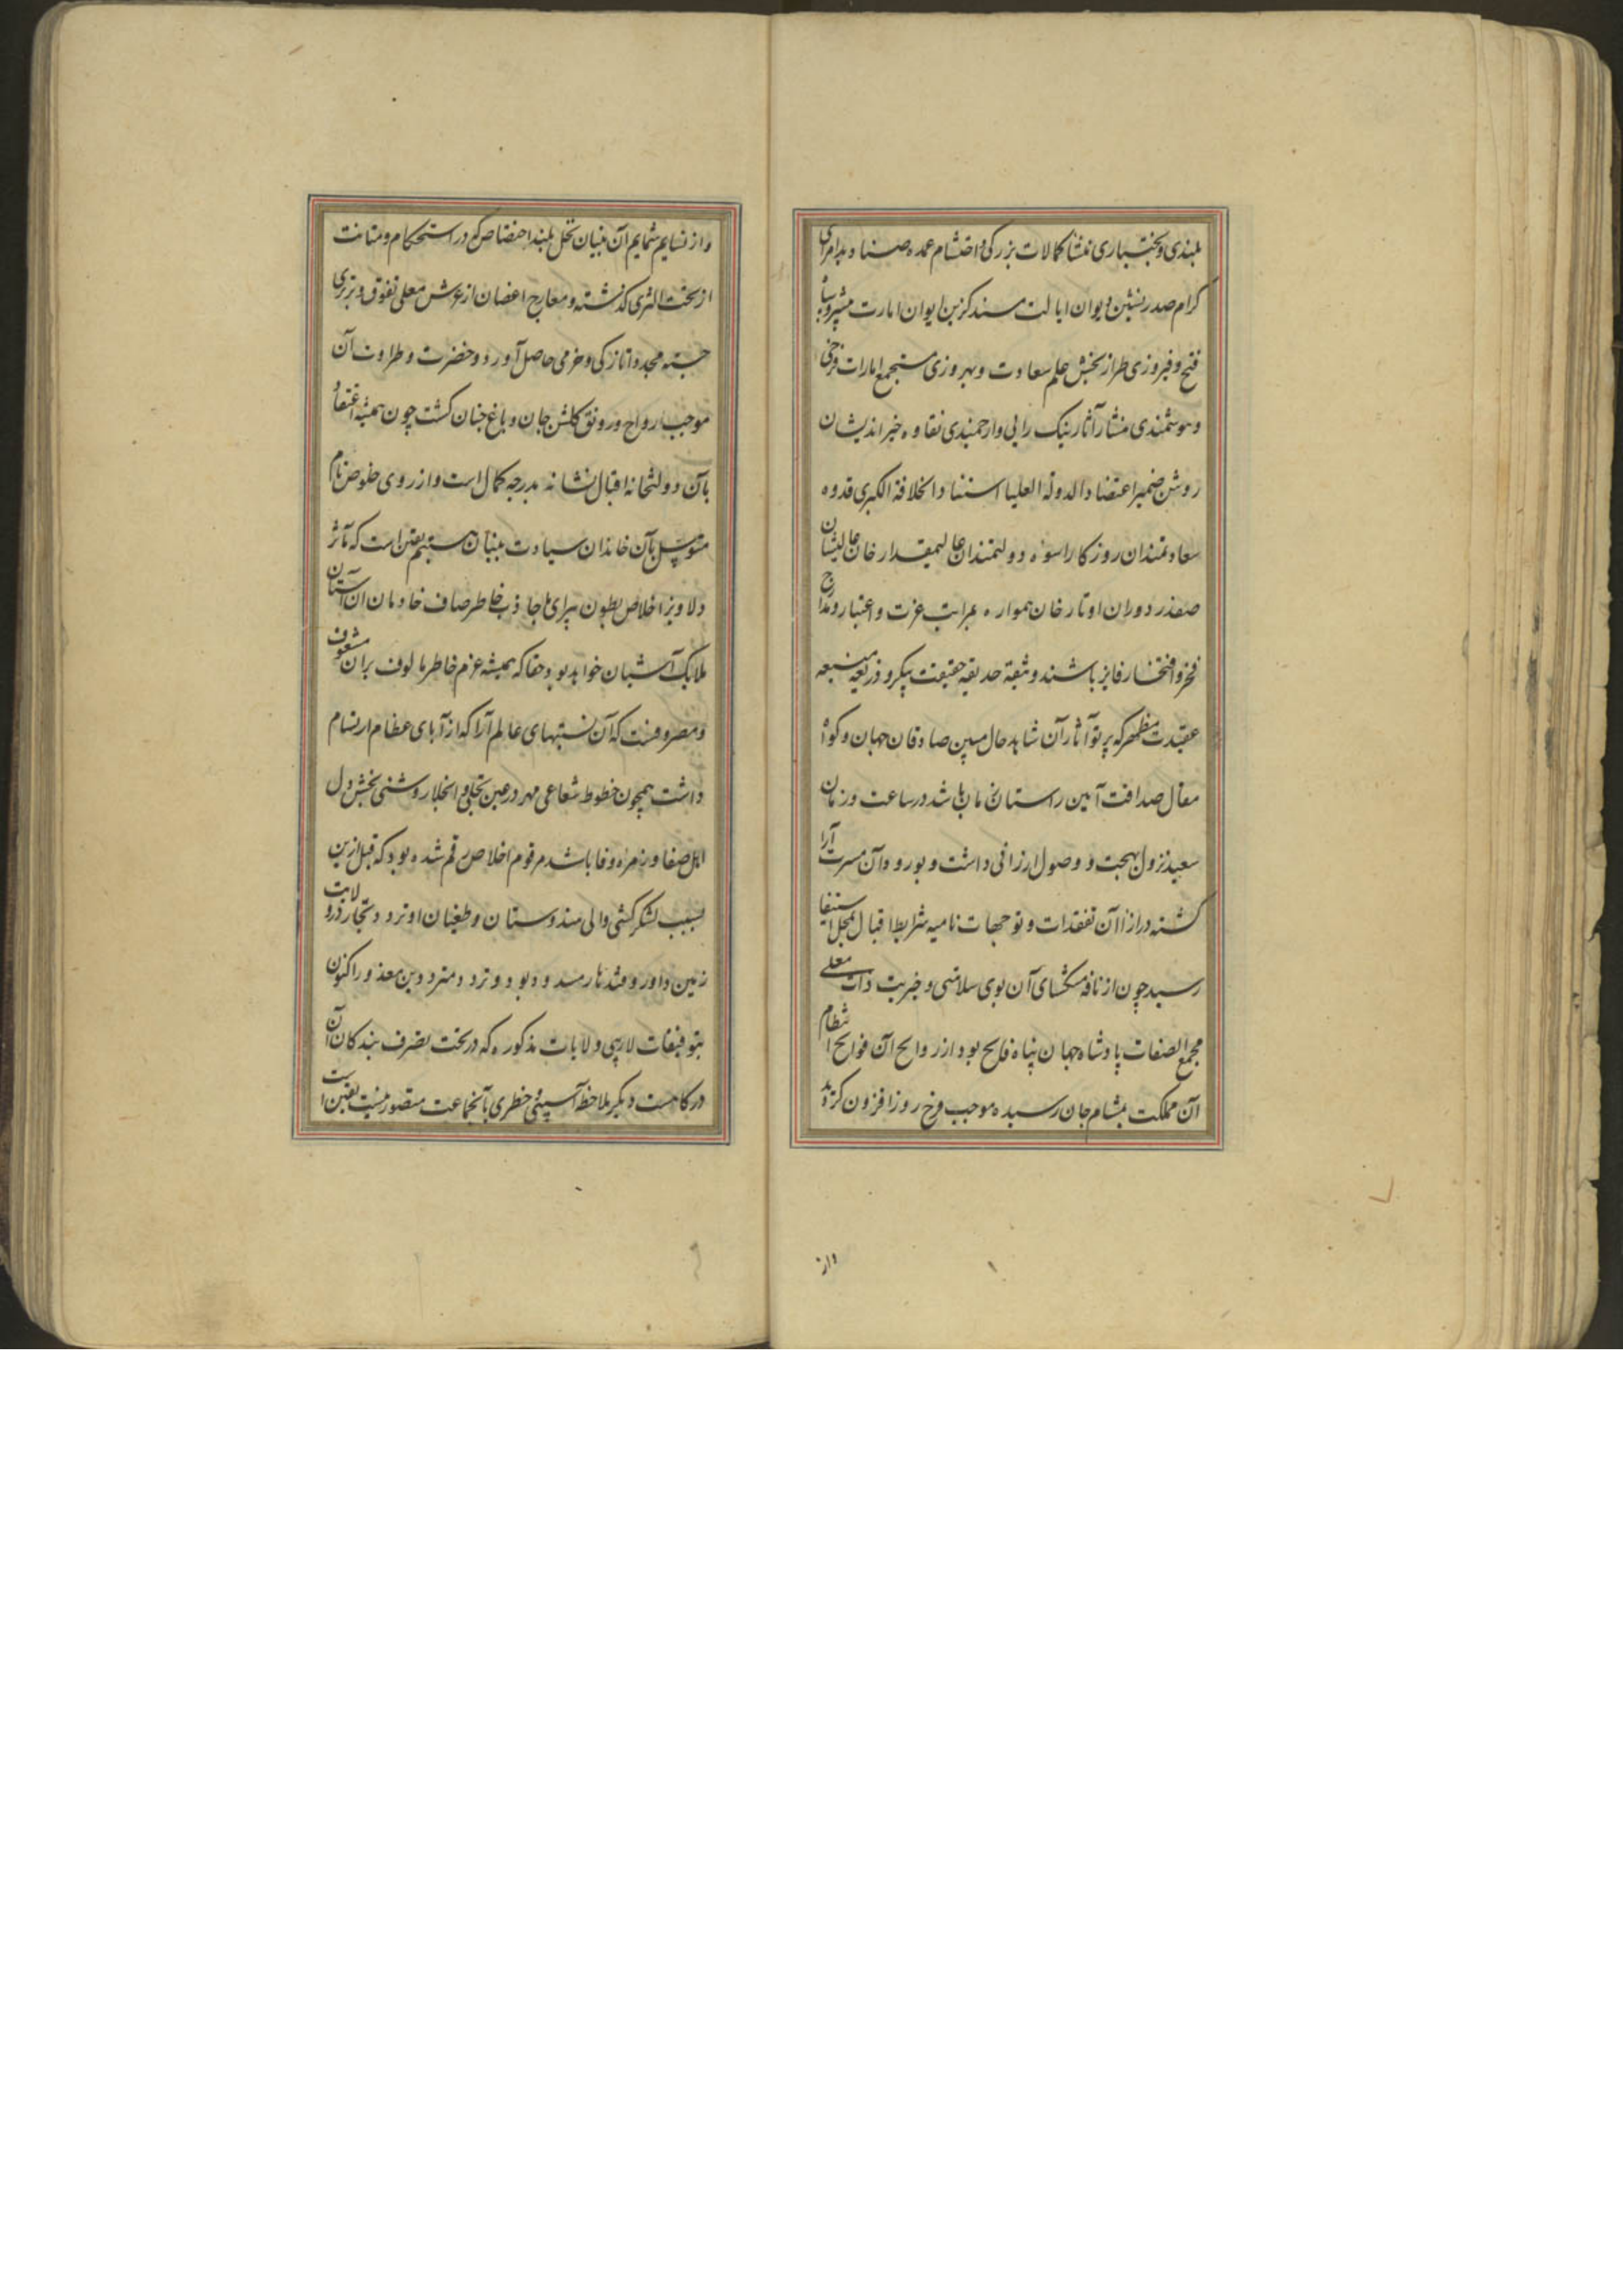 بلندی و بختیاری منشا کمالات بزرگی و احتشام عمده صنادید امرای
کرام صدر نشین دیوان ایالت مسند گزین ایوان امارت مشیر و
فتح و فیروزی طراز بخش علم سعادت و بهروزی مستجمع امارات فرخی
و هوشمندی منشار آثار نیک رایی و ارجمندی نقاوه خیر اندیشان
روشن ضمیر اعتضاد الدولة العلیا استناد الخلافة الکبری قدوه
سعادتمندان روزکار اسوه دولتمندان عالیمقدار خان عالیشان
صفدر دوران اوتار خان همواره بمراتب عزت و اعتبار و مدارج
فخر و افتخار فایز باشند وثیقه حدیقه حقیقت پیکر و ذریعه منیعه
عقیدت مظهر که پرتو آثار آن شاهد حال مبین صادقان جهان و کواه
مقال صداقت آیین راستان زمان باشد در ساعت و زمان
سعید نزول بهجت و وصول ارزانی داشت و بورود آن مسرت آرا
کشته در ازا آن تفقدات و توجهات نامیه شرایط اقبال بمحل استیفا
رسید چون از نافه مشکسای آن بوی سلامتی و خیریت ذات معلی
مجمع الصفات پادشاه جهان پناه فایح بود از روایح آن فوایح انتظام
آن مملکت بمشام جان رسیده موجب فرخ روز افزون کردید
واز
و از نسایم شمایم آن بنیان نخل بلند اختصاص که در استحکام و متانت
از تحت الثری کذشته و معارج اغصان از عرش معلی تفوق و برتری
جسته مجددا تازکی و خرمی حاصل آورد و خضرت و طراوت آن
موجب رواج و رونق کلشن جان و باغ جنان کشت چون همیشه اعتقاد
بآن دولتخانه اقبال نشانه بدرجه کمال است و از روی خلوص تام
متوسل بآن خاندان سیادت بنیان هستیم یقین است که مآثر
دلاویز اخلاص بطون پیرای ما جاذب خاطر صاف خادمان آن آستان
ملایک آشیان خواهد بود حقا که همیشه عزم خاطر مالوف بر آن مشعوف
و مصروفست که آن نسبتهای عالم آرا که از آبای عظام ارتسام
داشت همچون خطوط شعاعی مهر در عین تجلی و انجلا روشنی بخش دل
اهل صفا و زمره وفا باشد مرقوم اخلاص رقم شده بود که قبل ازین
بسبب لشکر کشی والی هندوستان و طغیان او تردد تجار در ولایت
زمین داور و قندهار مسدود بود و تردد مترددین معذور اکنون
بتوفیقات لاریبی ولایات مذکوره که در تحت تصرف بندکان آن
درکاهست دیکر ملاحظه آسیبی خطری بآنجماعت متصور نیست یقین است